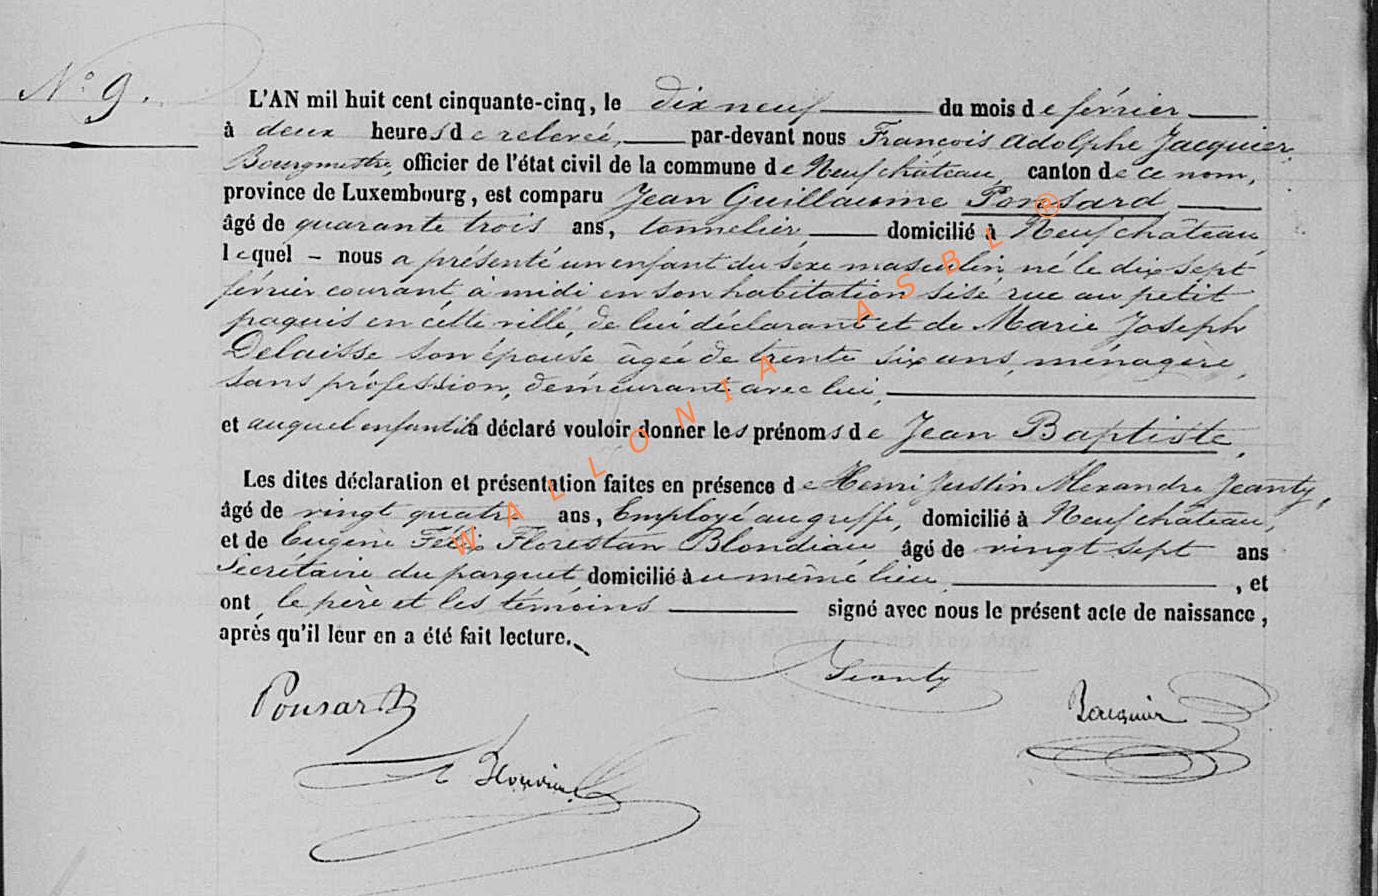 N° 9.
L'AN mil huit cent cinquante-cinq, le dix neuf du mois de février
à deux heures de relevée, par-devant nous François Adolphe Jacquier,
Bourgmestre, officier de l'état civil de la commune de Neufchâteau, canton de ce nom,
province de Luxembourg, est comparu Jean Guillaume Ponsard
âgé de quarante trois ans, tonnelier domicilié à Neufchâteau
lequel - nous a présenté un enfant du sexe masculin né le dix sept
février courant, à midi en son habitation sise rue au petit
paquis en cette ville, de lui déclarant et de Marie Joseph
Delaisse son épouse âgée de trente six ans, ménagère,
sans profession, demeurant avec lui,
et auquel enfant il a déclaré vouloir donner les prénoms de Jean Baptiste,
Les dites déclaration et présentation faites en présence de Henri Justin Alexandre Jeanty,
âgé de vingt quatre ans, Employé au greffe, domicilié à Neufchâteau,
et de Eugène Félix Florestan Blondiau âgé de vingt sept ans
Secrétaire du parquet domicilié au même lieu, et
ont le père et les témoins signé avec nous le présent acte de naissance,
après qu'il leur en a été fait lecture.
Jeanty
Ponsard
Jacquier
WALLONIA ASBL ®